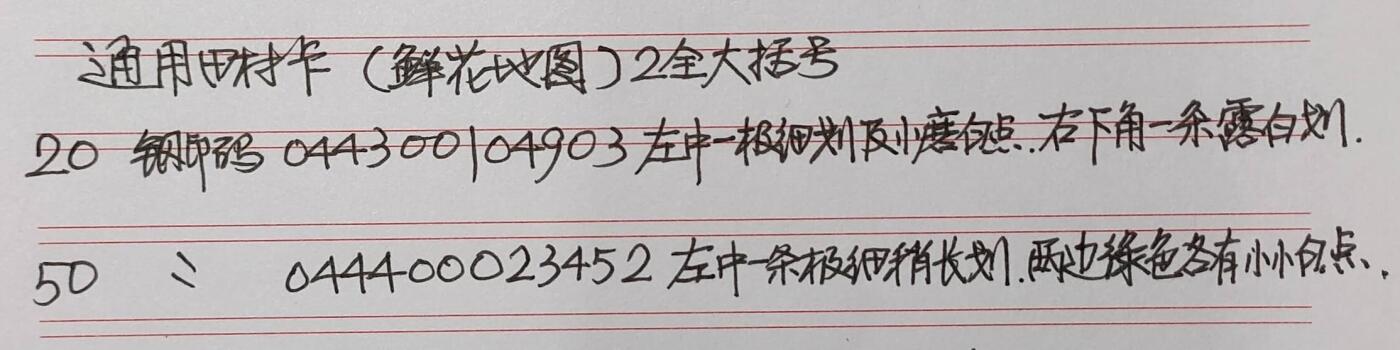 通用田村卡（鲜花地图）2全大括号
20 钢印码 044300104903 左中一极细划及小磨白点.右下角一条露白划.
50 〃 044400023452 左中一条极细稍长划.两边绿色各有小小白点.